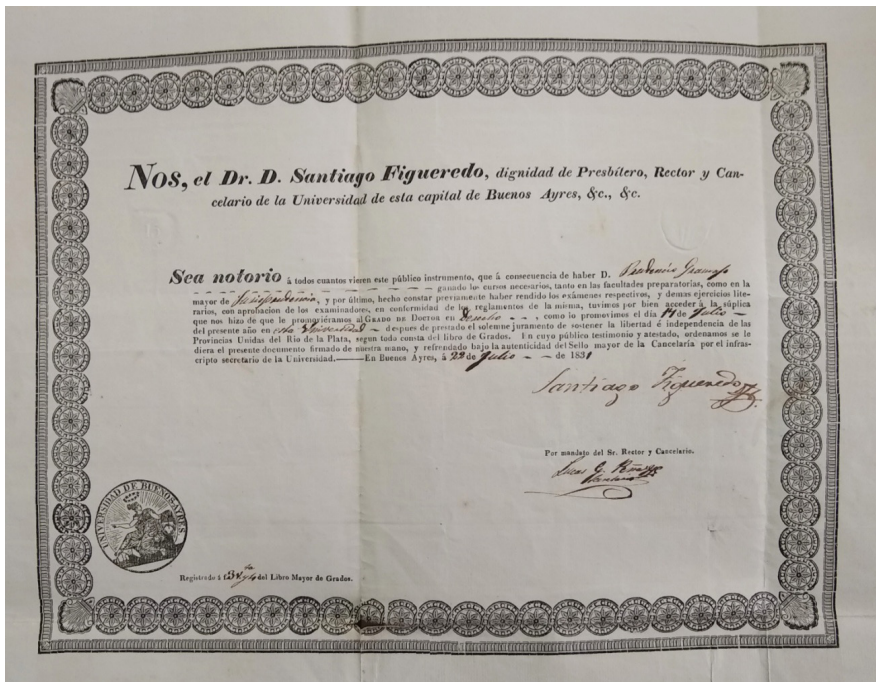 Nos, el Dr. D. Santiago Figueredo, dignidad de Presbítero, Rector y Can-
celario de la Universidad de esta capital de Buenos Ayres, &c., &c.
Sea notorio á todos cuantos vieren este público instrumento, que á consecuencia de haber D. Prudencio
ganado los cursos necesarios, tanto en las facultades preparatorias, como en la
mayor de Jurisprudencia, y por último, hecho constar previamente haber rendido los exámenes respectivos, y demas ejercicios lite-
rarios, con aprobacion de los examinadores, en conformidad de los reglamentos de la misma, tuvimos por bien acceder á la súplica
que nos hizo de que le promoviéramos al GRADO DE DOCTOR en Derecho - -, como lo promovimos el dia 14 de Julio -
del presente año en esta Universidad - despues de prestado el solemne juramento de sostener la libertad é independencia de las
Provincias Unidas del Rio de la Plata, segun todo consta del libro de Grados. En cuyo público testimonio y atestado, ordenamos se le
diera el presente documento firmado de nuestra mano, y refrendado bajo la autenticidad del Sello mayor de la Cancelaría por el infras-
cripto secretario de la Universidad.——En Buenos Ayres, á 22 de Julio - - de 1831
Santiago Figueredo
Por mandato del Sr. Rector y Cancelario.
Lucas G. Peña
UNIVERSIDAD DE BUENOS AYRES
Registrado á f. del Libro Mayor de Grados.